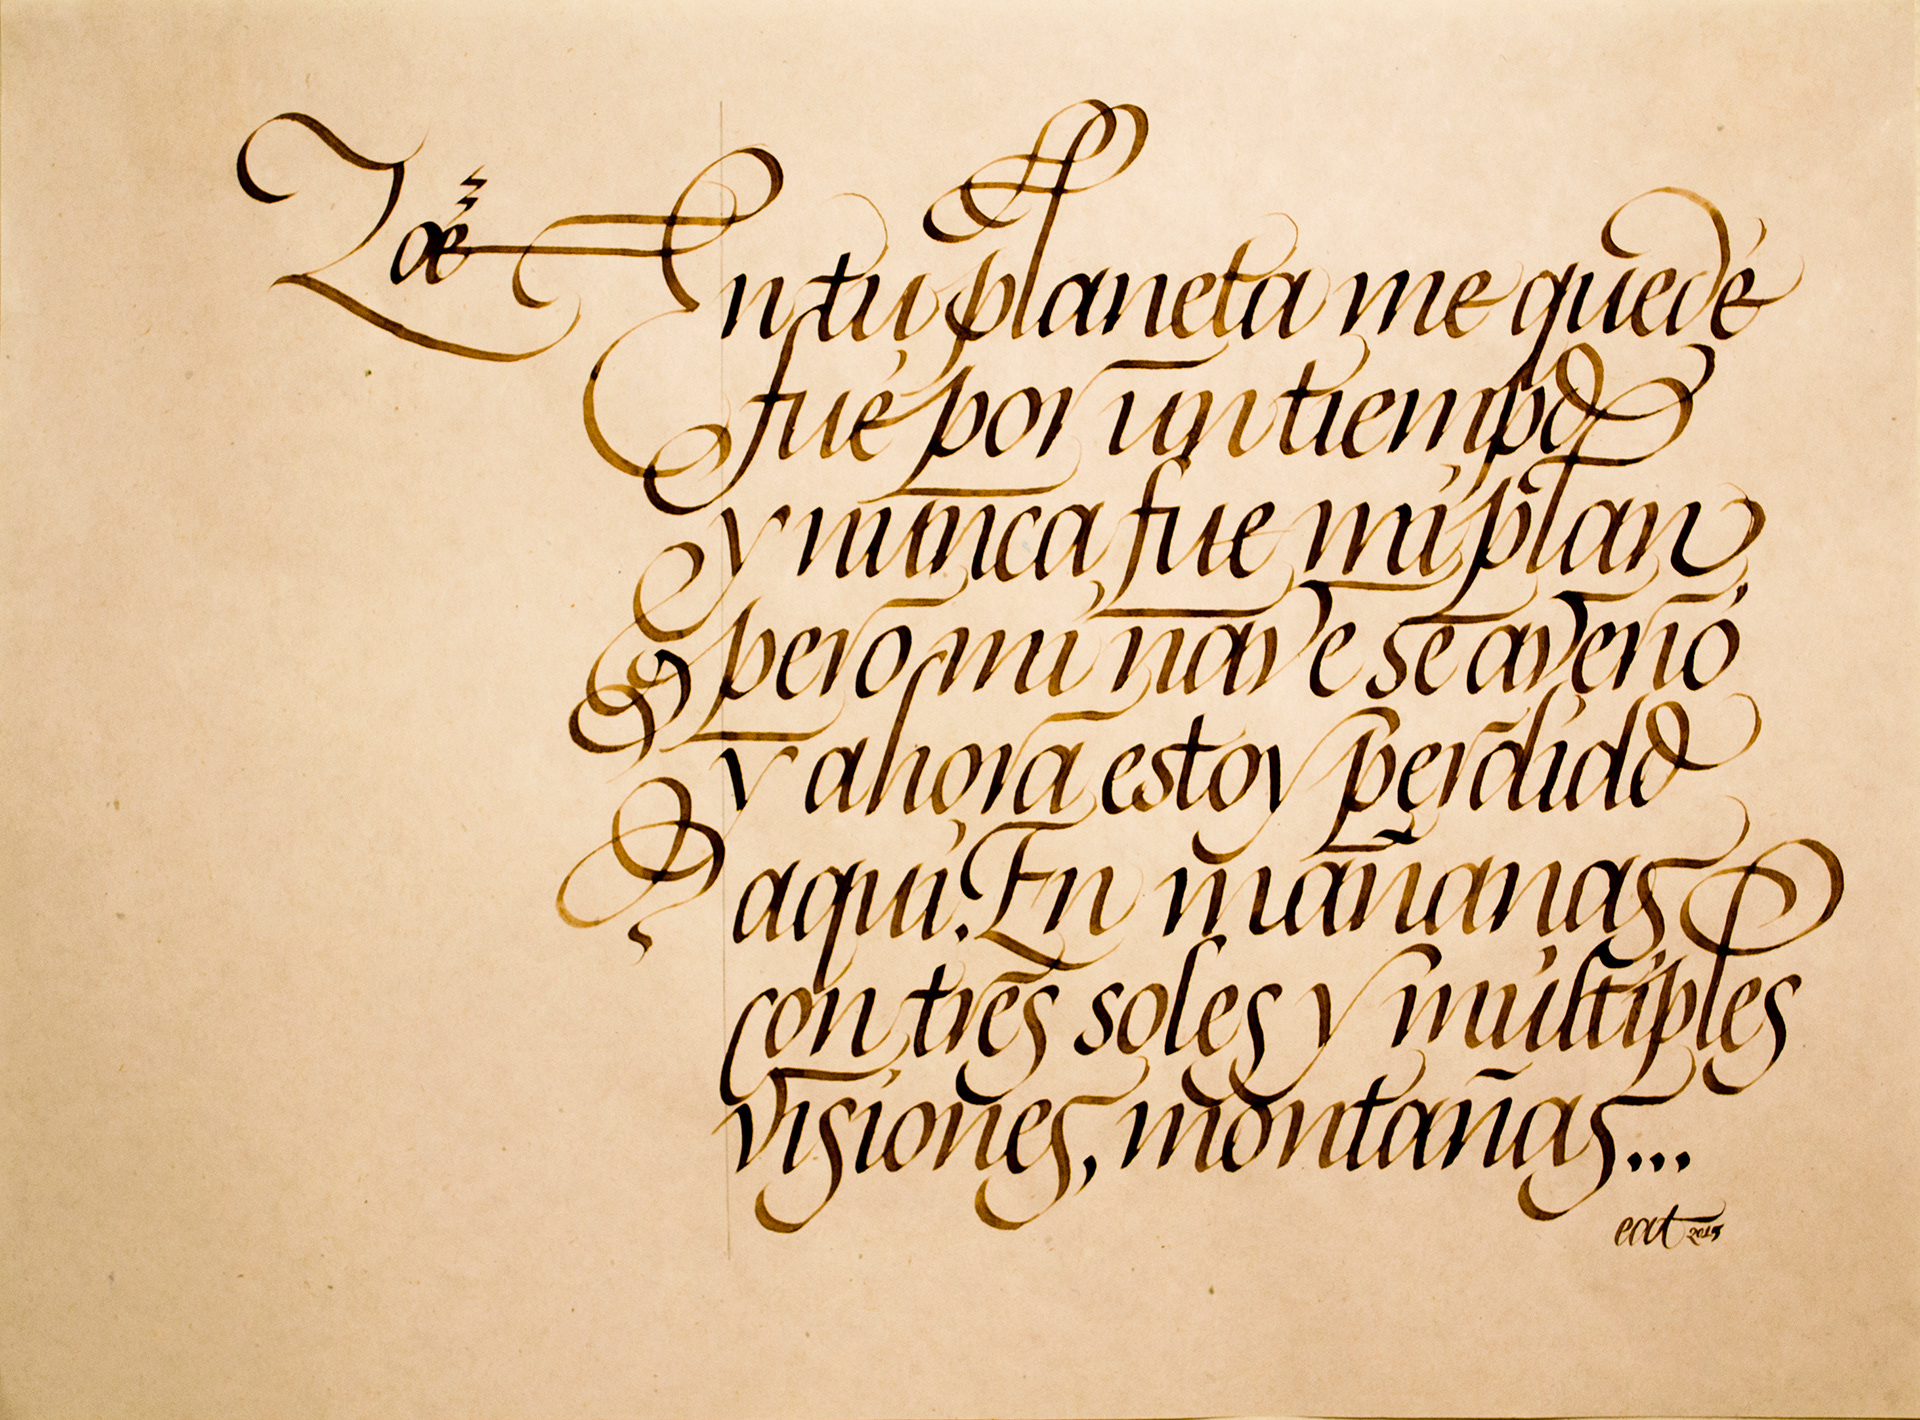 Zoé
En tu planeta me quedé
fué por un tiempo
y nunca fue mi plan
pero mi nave se averió
y ahora estoy perdido
aquí. En mañanas
con tres soles y múltiples
visiones, montañas...
eat 2015